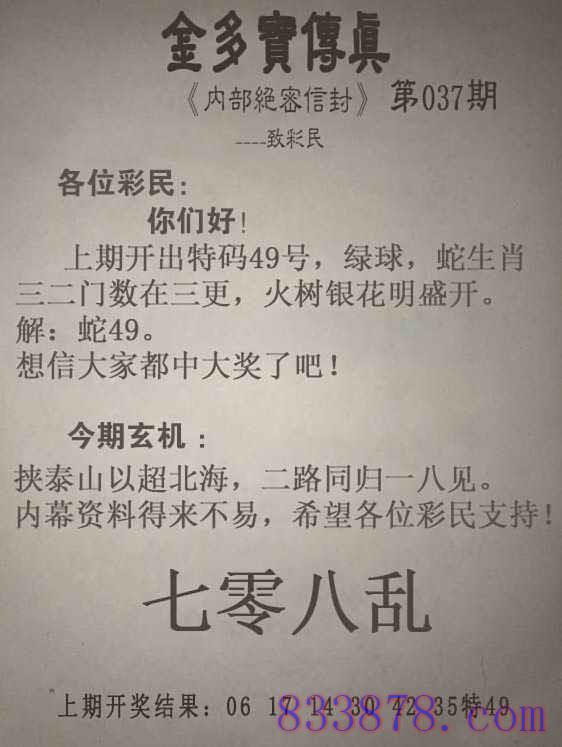 金多寶傳真
《内部絕密信封》 第037期
----致彩民
各位彩民:
你们好!
上期开出特码49号，绿球，蛇生肖
三二门数在三更，火树银花明盛开。
解：蛇49。
想信大家都中大奖了吧！
今期玄机：
挟泰山以超北海，二路同归一八见。
内幕资料得来不易，希望各位彩民支持！
七零八乱
上期开奖结果：06 17 14 30 42 35特49
833878.com